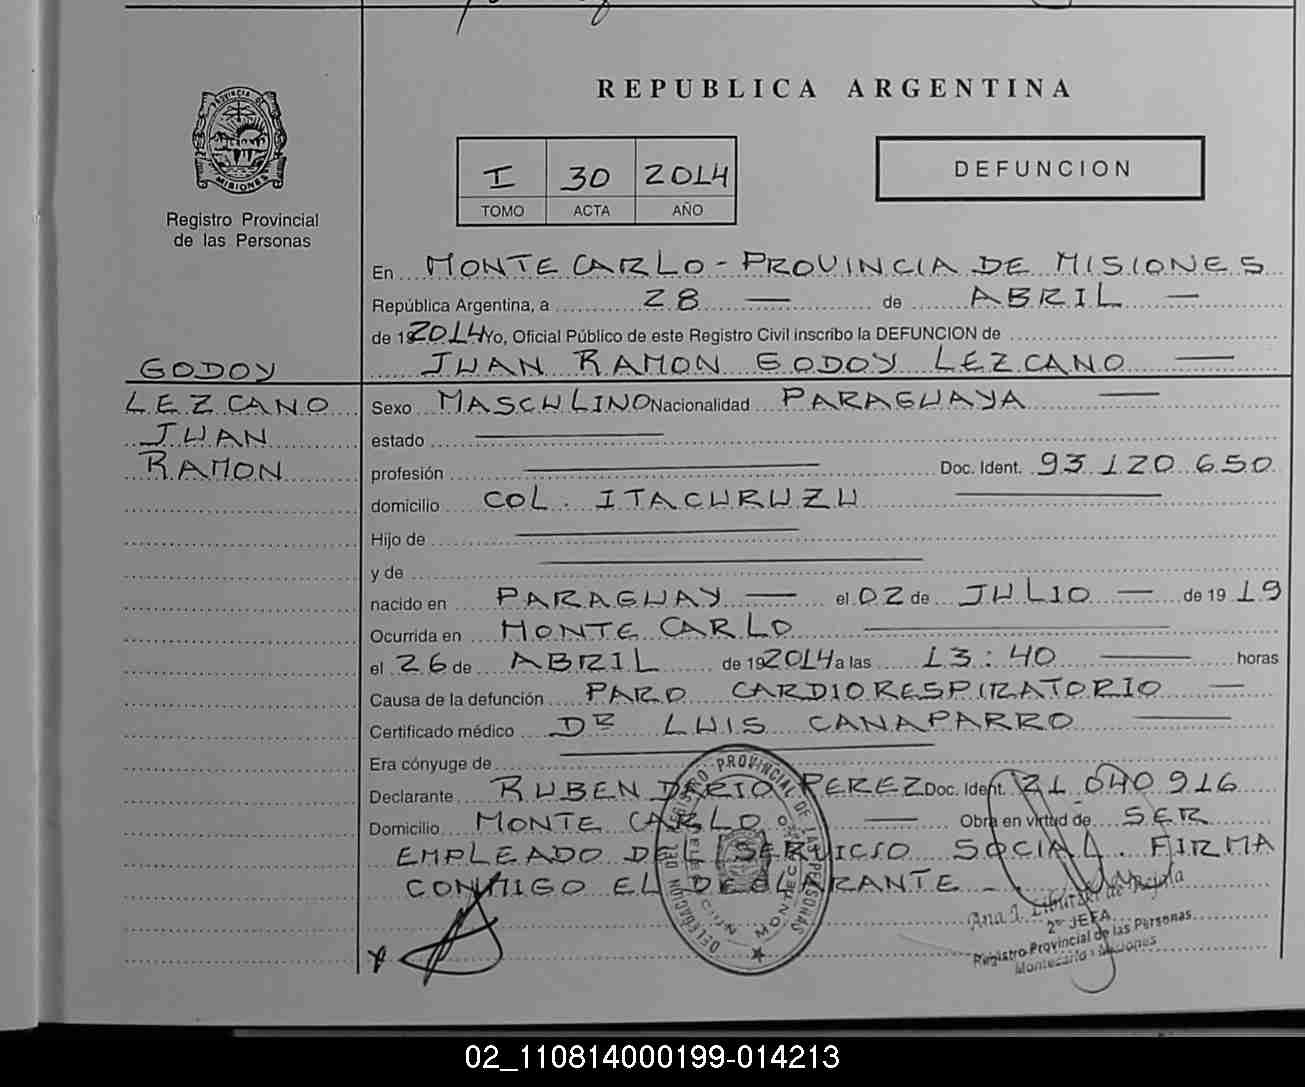 PROVINCIA DE
MISIONES
Registro Provincial
de las Personas
REPUBLICA ARGENTINA
I 30 2014
TOMO ACTA AÑO
DEFUNCION
En MONTECARLO - PROVINCIA DE MISIONES
República Argentina, a 28 — de ABRIL —
de 2014 Yo, Oficial Público de este Registro Civil inscribo la DEFUNCION de
JUAN RAMON GODOY LEZCANO —
GODOY
LEZCANO
JUAN
RAMON
Sexo MASCULINO Nacionalidad PARAGUAYA —
estado —
profesión — Doc. Ident. 93 120 650
domicilio COL. ITACURUZU —
Hijo de —
y de —
nacido en PARAGUAY — el 02 de JULIO — de 19 19
Ocurrida en MONTE CARLO —
el 26 de ABRIL de 19 2014 a las 13:40 — horas
Causa de la defunción PARO CARDIORESPIRATORIO —
Certificado médico DR LUIS CANAPARRO —
Era cónyuge de —
Declarante RUBEN DARIO PEREZ Doc. Ident. 21 040 916
Domicilio MONTE CARLO — Obra en virtud de SER
EMPLEADO DEL SERVICIO SOCIAL. FIRMA
CONMIGO EL DECLARANTE -
REGISTRO PROVINCIAL DE LAS PERSONAS
DELEGACION
Ana I.
2da JEFA
Registro Provincial de las Personas
Montecarlo - Misiones
02_110814000199-014213